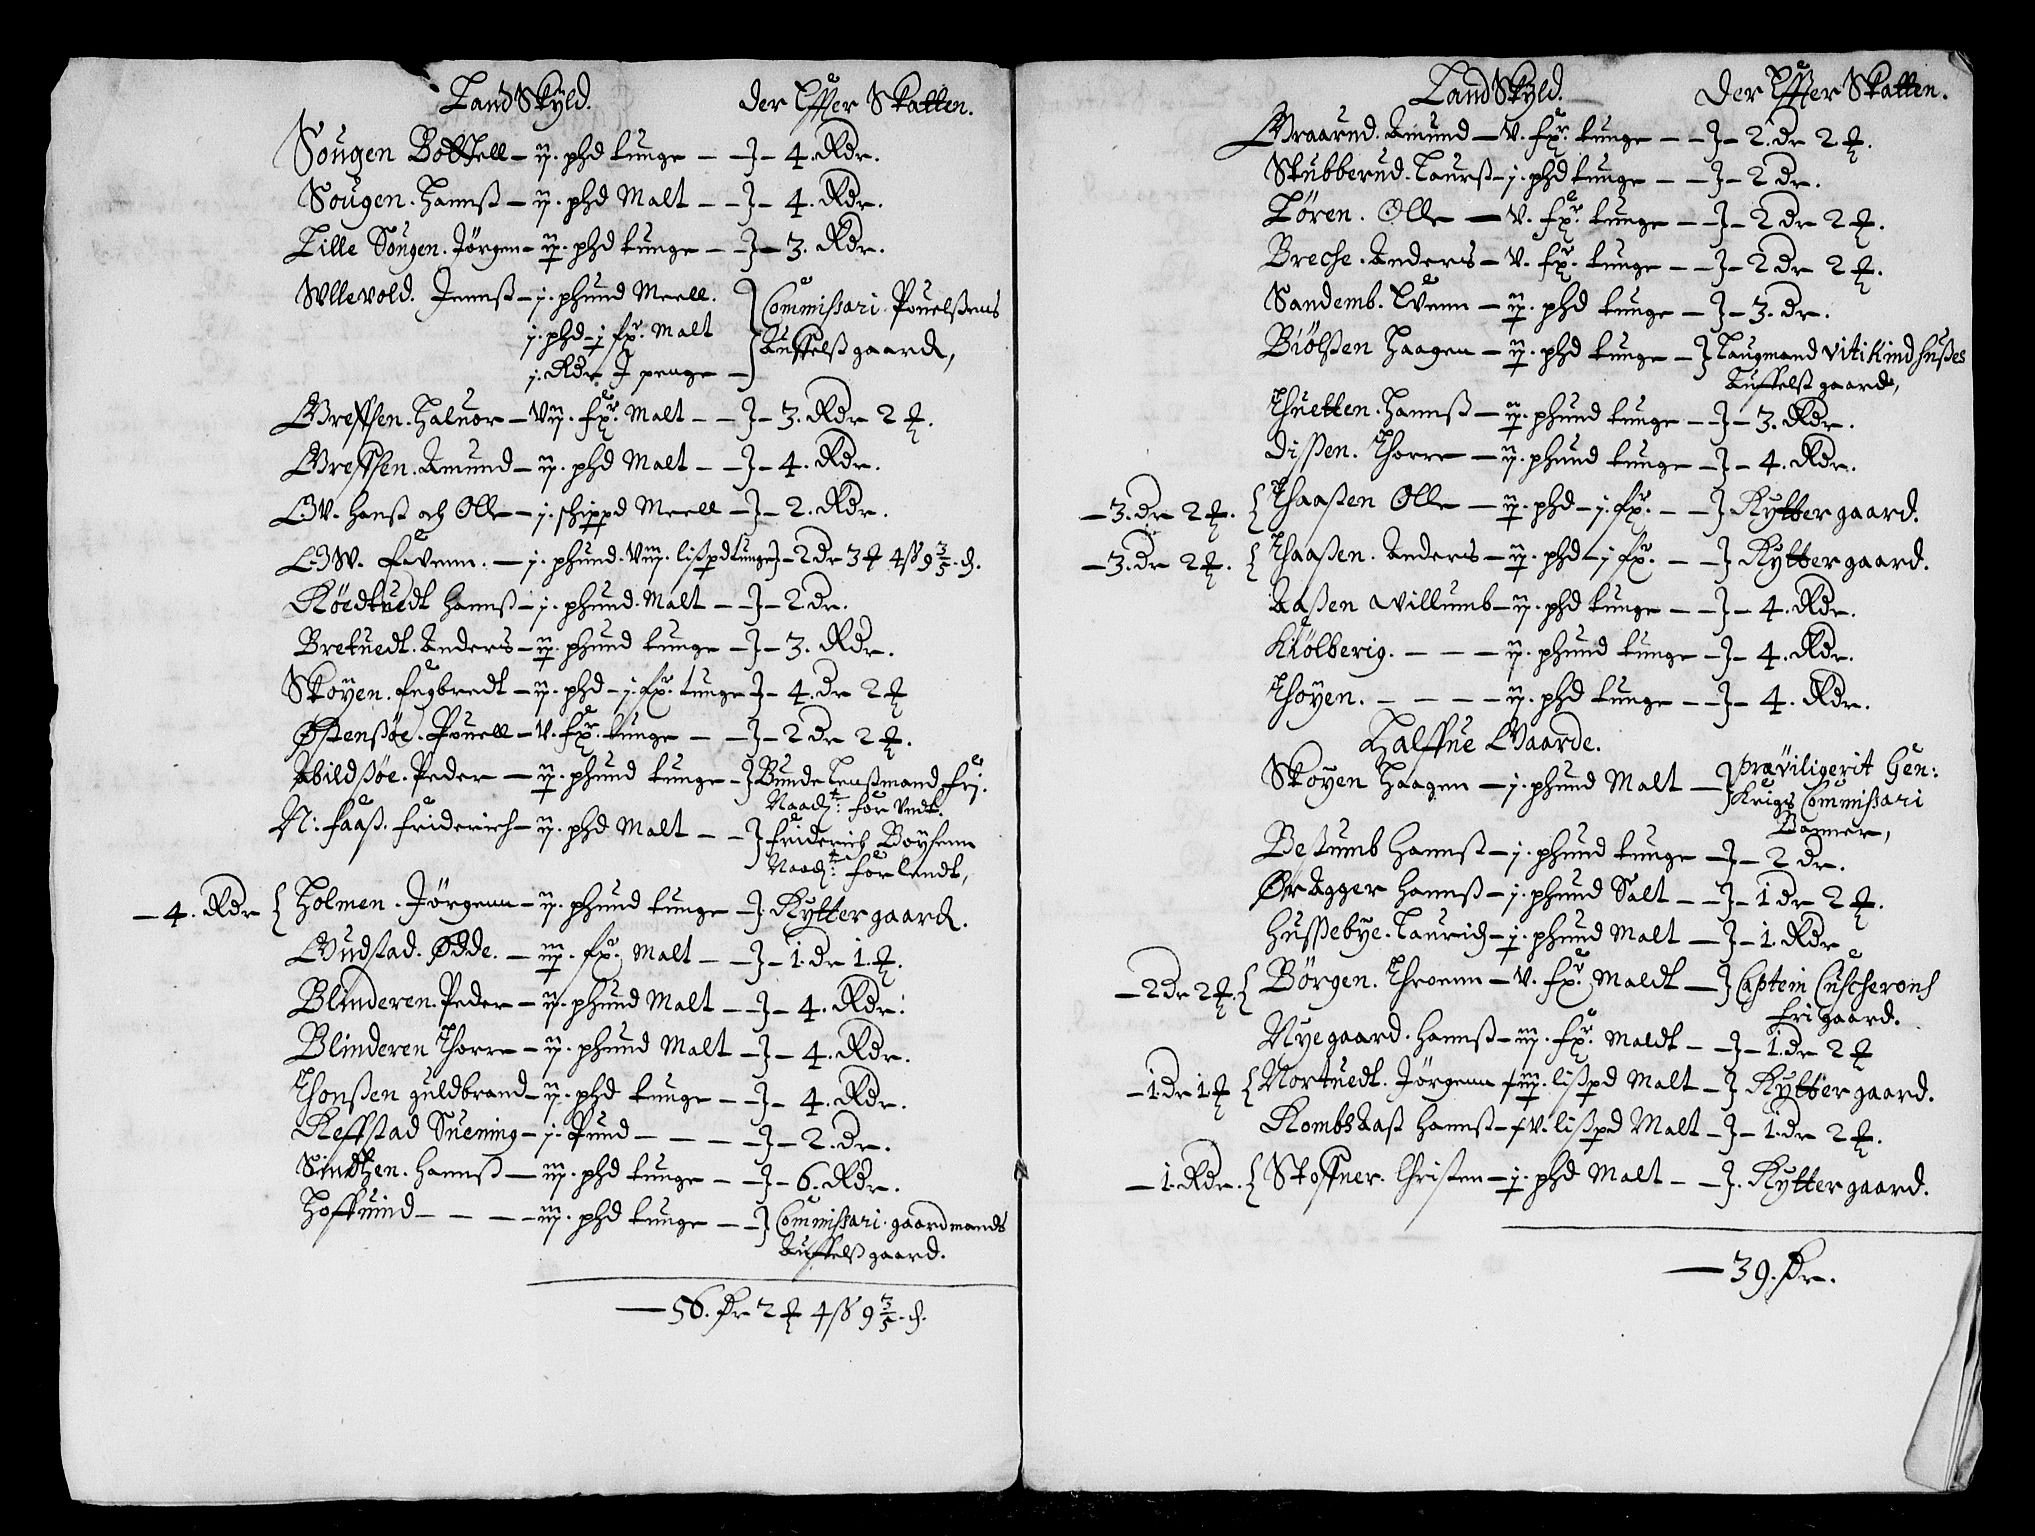 Land Skyld. Der Effter Skatten.
Sougen Bottell – ij. phd tunge – – 4. Rdr.
Sougen. Hannß – ij. phd Malt – – 4. Rdr.
Lille Sougen. Jörgen – ij. phd tunge – 3. Rdr.
Wllevold. Jennß – j. phund Meell. Commissari Pouelßens
j. phd – j fr. Malt Auffelß gaard,
j. Rdr. J penge
Greffsen. Haluor – Vij. fr. Malt – – 3. Rdr 2 ꝑ.
Greffsen. Amund – ij. phd Malt – – 4. Rdr.
GV. Hanß och Olle – j. schippd Meell – 2. Rdr.
GW. Evenn. – j. phund. Viij. lißpd tunge – 2 dr 3 ꝑ 4 ß 9 3/5 ₰.
Röedtuedt Hannß – j. phund. Malt – – 2 dr.
Bretuedt. Anders – ij. phund tunge – 3. Rdr.
Skoyen. Engbredt – ij. phd – j. fr. tunge – 4. dr 2 ꝑ
Østensöe. Pouell – V. fr. tunge – – 2 dr 2 ꝑ.
Abildsöe. Peder – ij. phund tunge – Bunde Lenßmand fri.
Naad: for Undt.
N: Aaß. Friderich – ij. phd Malt – – Friderich Boysenn
Naad: forlendt,
– 4. Rdr { Holmen. Jörgenn – ij. phund tunge – Rytter gaard.
Gudstad. Ødde. – iij. fr. Malt – – 1. dr 1. ꝑ.
Blinderen. Peder – ij. phund Malt – 4. Rdr.
Blinderen Thorre – ij. phund Malt – 4. Rdr.
Thonßen guldbrand – ij. phd tunge – – 4. Rdr.
Reffstad Suening – j. Pund – – – – 2. dr.
Sindtzen. Hannß – iij. phd tunge – – 6. Rdr.
Hoffuind – – – – iij. phd tunge – – Commissari gaardmands
Auffelß gaard.
– 56. dr 2 ꝑ 4 ß 9 3/5 ₰.
Land Skyld. Der Effter Skatten.
Graarud. Amund – V. fr. tunge – – 2. dr 2 ꝑ.
Skubberud. Laurß – j. phd tunge – – 2 dr.
Lören. Olle – V. fr. tunge – – 2 dr 2 ꝑ.
Breche. Anders – V. fr. tunge – – 2 dr 2 ꝑ.
Sandemb. Evenn – ij. phd tunge – 3. dr.
Biölßen Haagen – ij. phd tunge – Laugmand Vitikind Hußes
Auffelß gaard,
Thuetten. Hannß – ij. phund tunge – – 3. Rdr.
Dißen. Thorre – ij. phund tunge – – 4. Rdr.
– 3. dr 2 ꝑ. { Thaaßen Olle – ij. phd – j. fr. – – Rytter gaard.
– 3. dr 2 ꝑ. { Thaaßen. Anders – ij. phd – j fr. – – Rytter gaard.
Aaßen Willumb – ij. phd tunge – – 4. Rdr.
Kiölberig. – – – ij. phund tunge – 4. Rdr.
Thöyen. – – – – ij. phd tunge – – 4. Rdr.
Halffue Gaarde.
Skoyen Haagen – j. phund Malt – Præviligerit Gen:
Krigs Commissari
Banner,
Bestumb Hannß – j. phund tunge – 2 dr.
Ør Agger Hannß – j. phund Salt – – 1 dr 2 ꝑ.
Hussebye. Laurids – j. phund Malt – 1. Rdr
– 2 dr 2 ꝑ. { Börgen. Thronn – V. fr. Maldt – Captein Cuscherons
fri gaard.
Nyegaard. Hannß – iij. fr. Maldt – – 1. dr 2 ꝑ
– 1. dr 1 ꝑ { Nortuedt. Jörgenn – lißpd Malt – Rytter gaard.
Kombs Aaß Hannß – lißpd Malt – 1. dr 2 ꝑ.
– 1. Rdr. { Stoffner. Christen – j. phd Malt – – Rytter gaard.
– 39. dr.